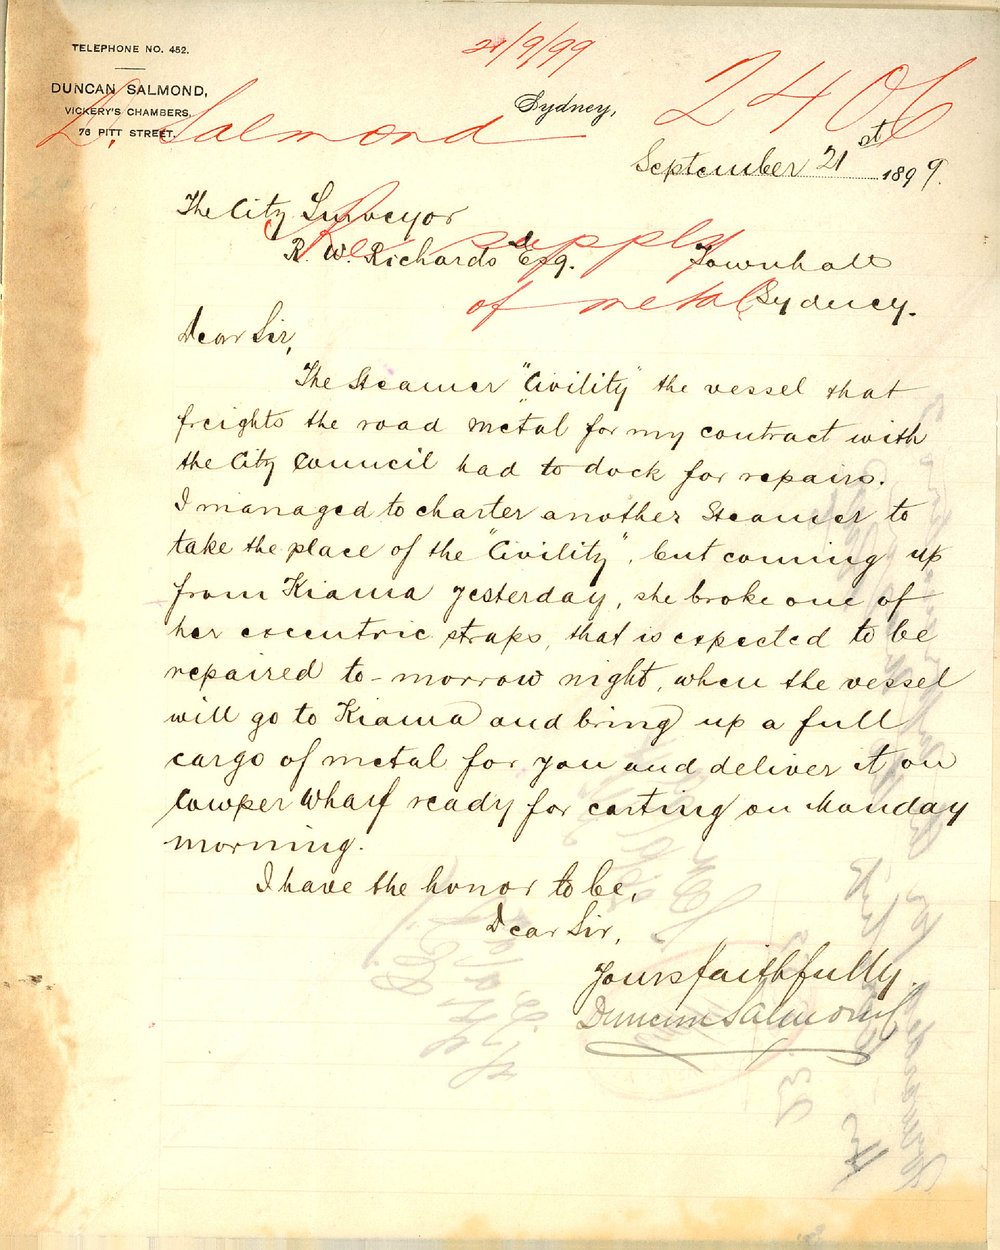 TELEPHONE NO. 452.
DUNCAN SALMOND,
VICKERY'S CHAMBERS,
76 PITT STREET.
21/9/99
2406
D. Salmond
Sydney,
September 21st 1899.
Re supply
of metal
The City Surveyor
R. W. Richards Esq.
Townhall
Sydney.
Dear Sir,
The Steamer "Civility" the vessel that
freights the road metal for my contract with
the City Council had to dock for repairs.
I managed to charter another Steamer to
take the place of the "Civility", but coming up
from Kiama yesterday, she broke one of
her eccentric straps, that is expected to be
repaired to-morrow night, when the vessel
will go to Kiama and bring up a full
cargo of metal for you and deliver it on
Cowper Wharf ready for carting on Monday
morning.
I have the honor to be,
Dear Sir,
Yours faithfully.
Duncan Salmond